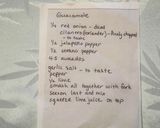 Guacamole
1/4 red onion - diced
cilantro (coriander) - finely chopped
- to taste
1/2 jalapeno pepper
1/2 serrano pepper
4-5 avocados
garlic salt - to taste
pepper
1/2 lime
smash all together with fork
season last and mix
squeeze lime juice on top